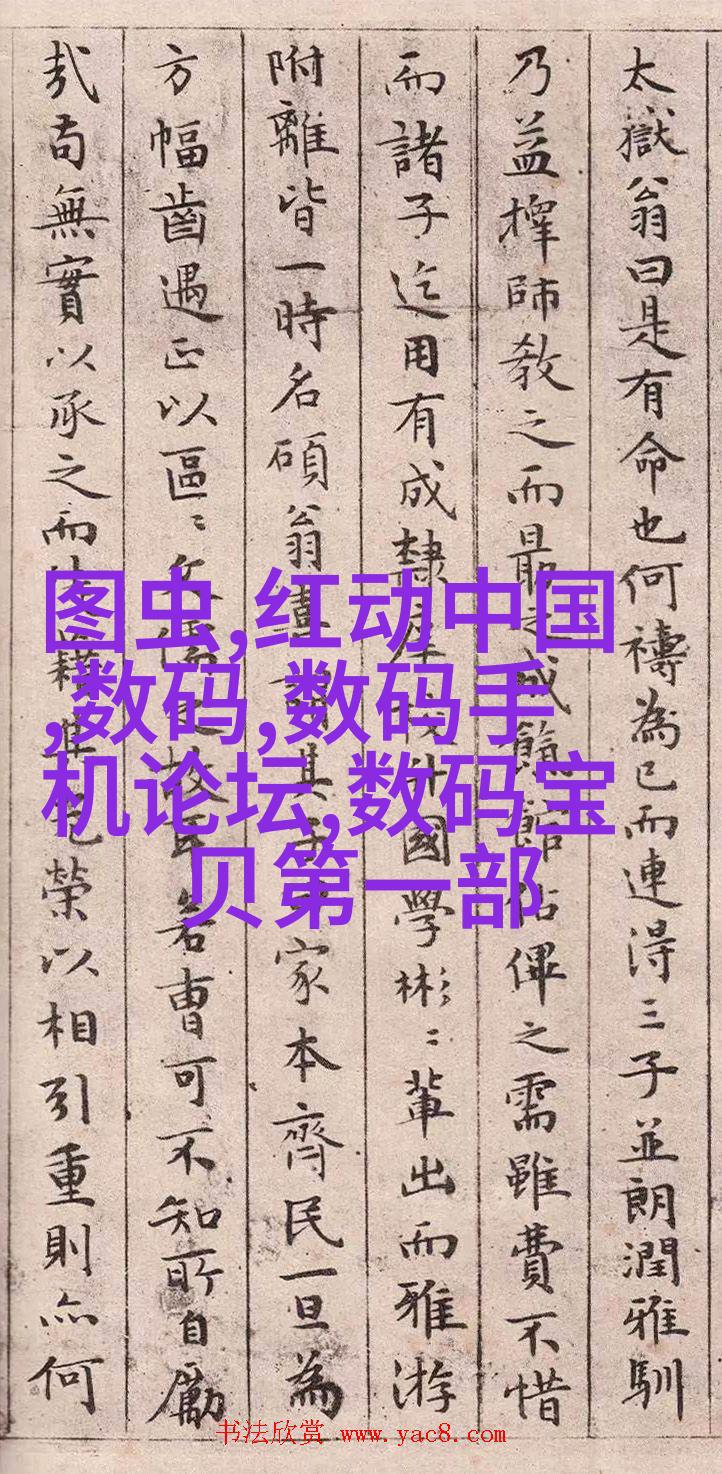 太嶽翁曰是有命也何禱為已而連得三子並朗潤雅馴
乃益擇師教之而最之成飭館佔俾之需雖費不惜
而諸子迄用有成隸庠校升國學彬〻輩出而雅游
附離皆一時名碩翁晝謂其家本齊民一旦為
方幅齒遇正以區〻文儒之故耳若曹可不知所自勵
哉苟無實以承之而籍華寵榮以相引重則亦何
图虫,红动中国
,数码,数码手
机论坛,数码宝
贝第一部
书法欣赏 www.yac8.com